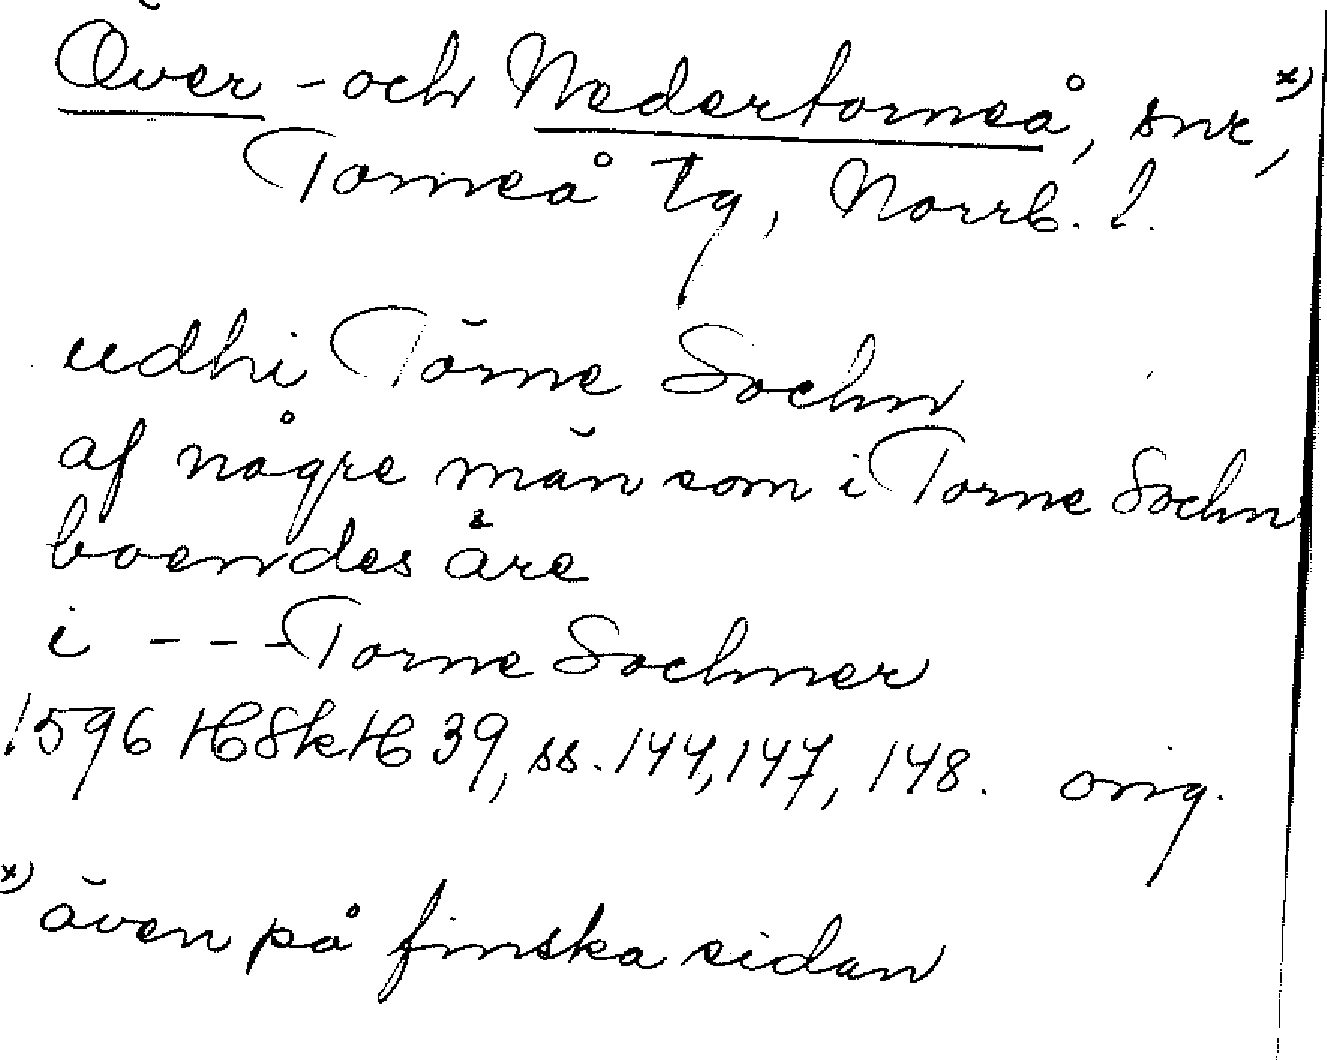 Över - och Nedertorneå, snr, x)
Torneå tg, Norrb. l.
udhi Törne Sochn
af någre män som i Torne Sochn
boendes äre
i - - - Torne Sochner
1596 HSkH 39, ss. 144, 147, 148. orig.
x) även på finska sidan